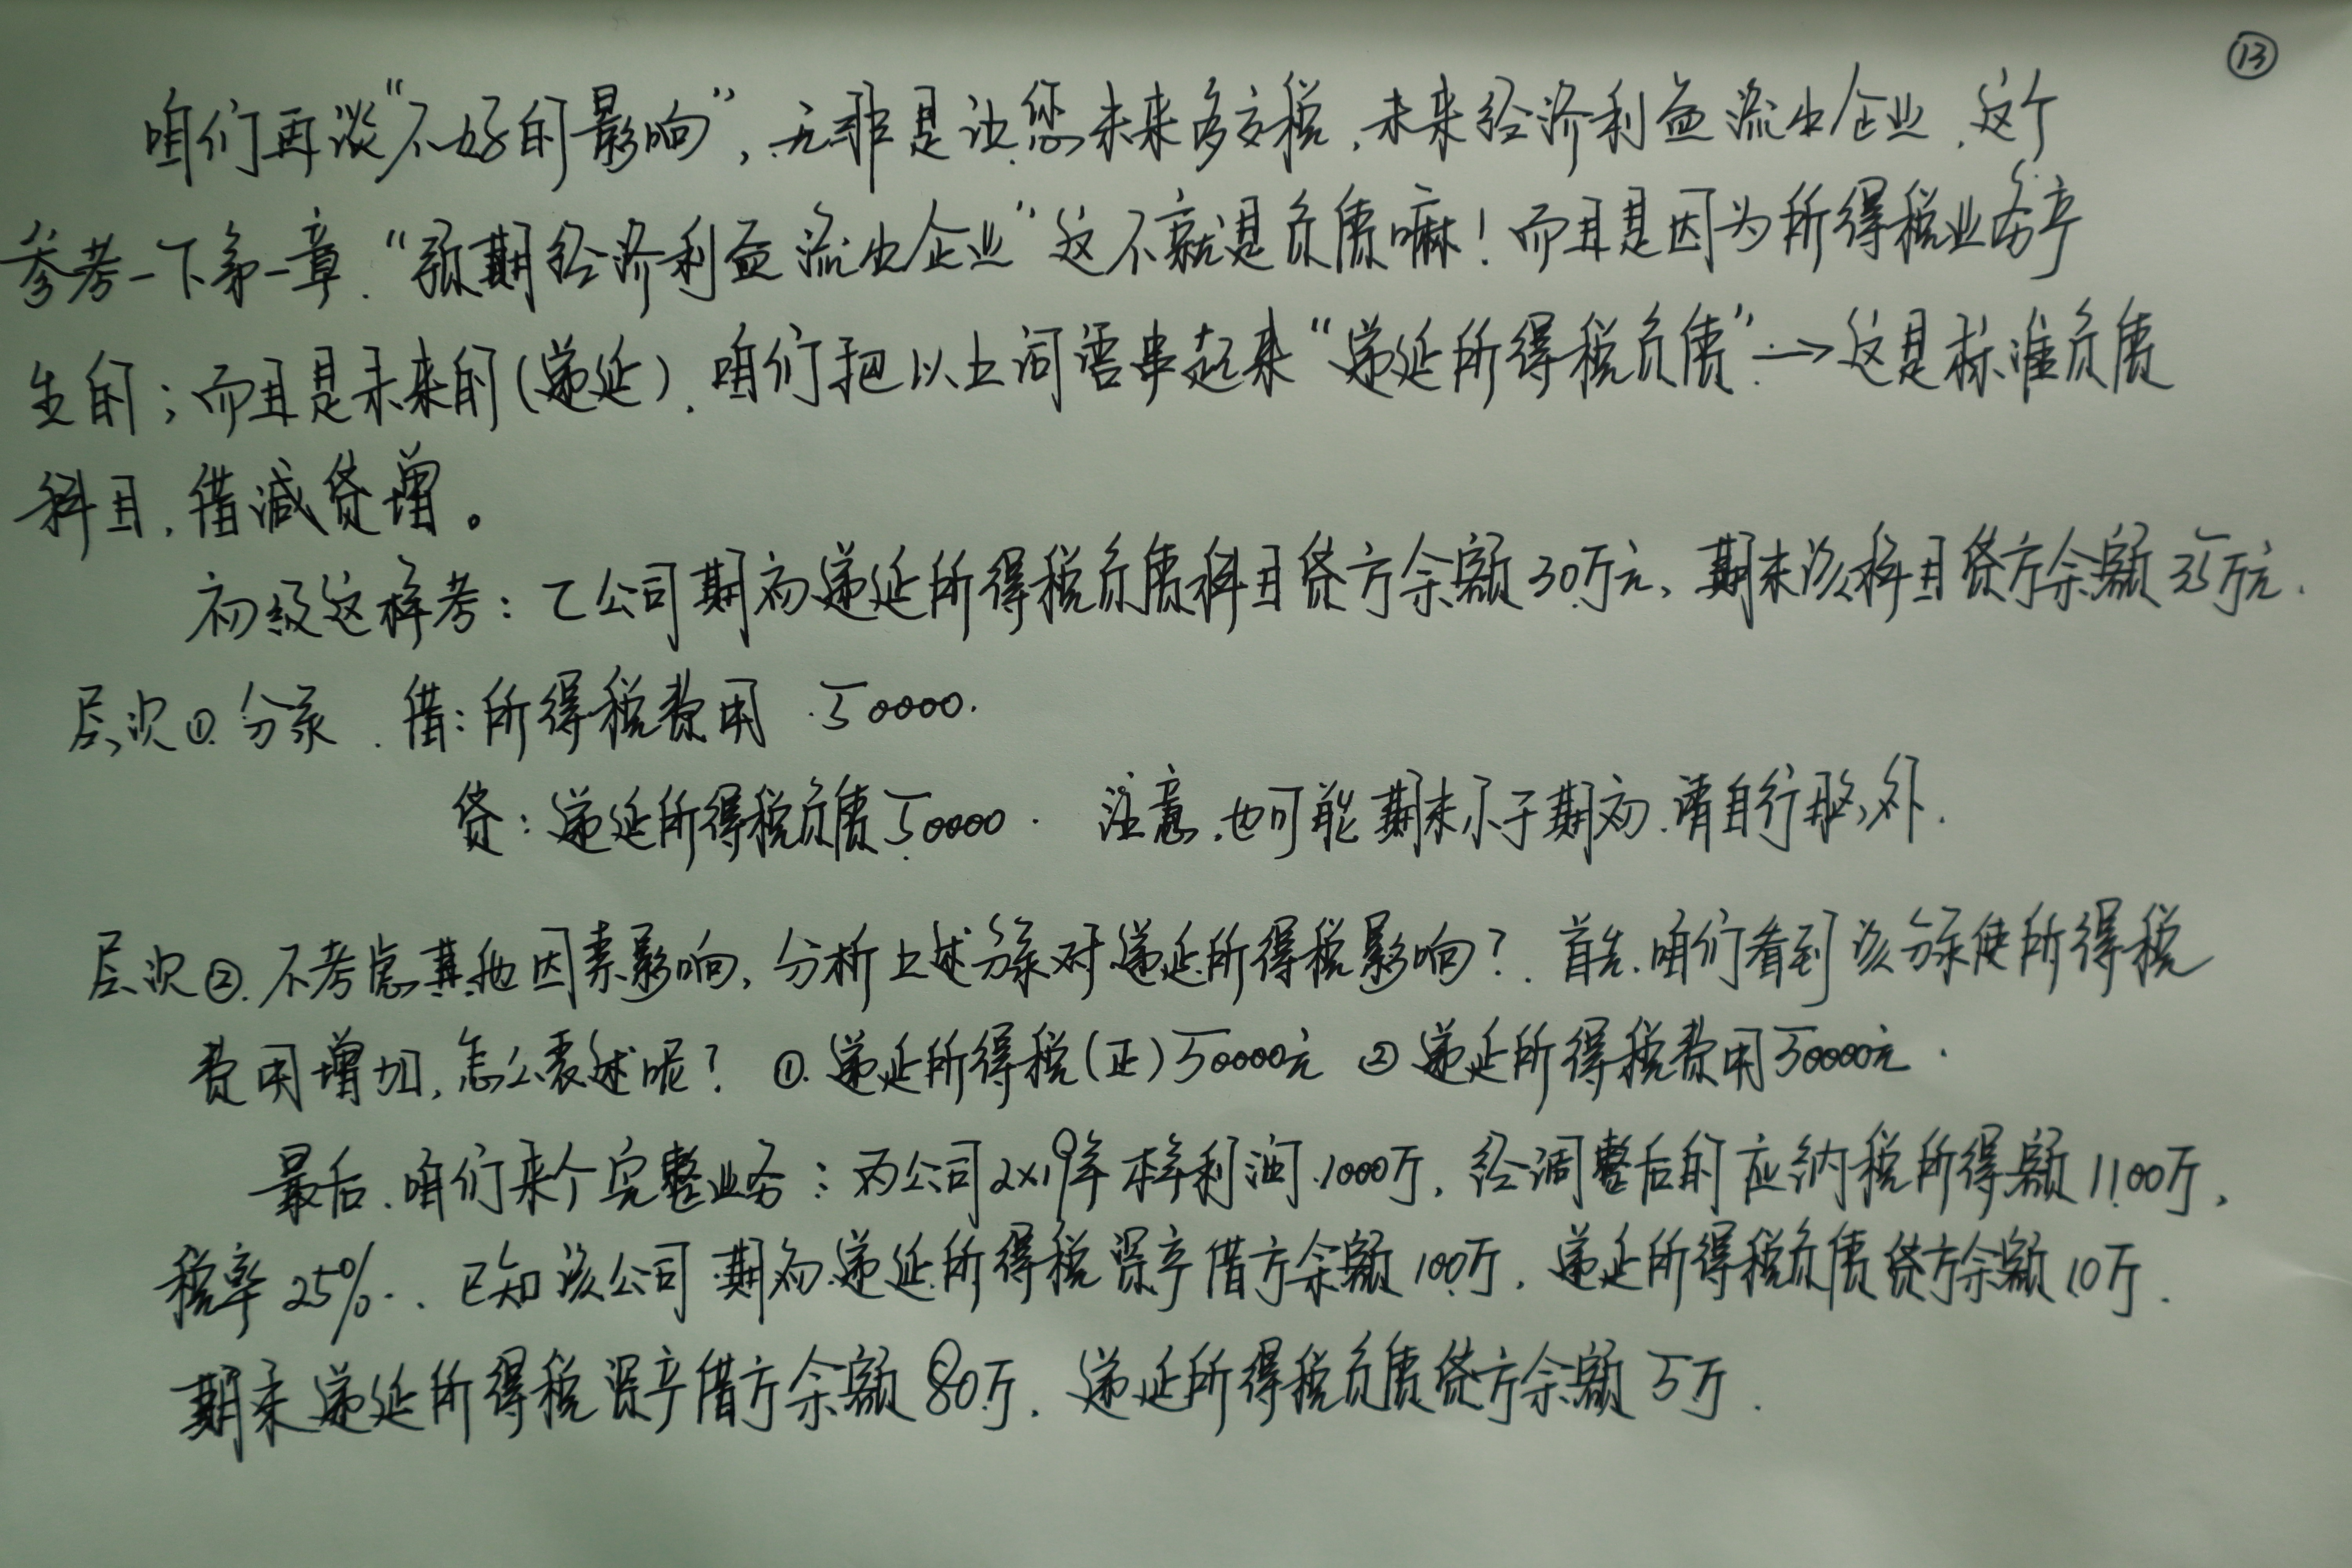 ⑬
咱们再谈“不好的影响”,无非是让您未来多交税,未来经济利益流出企业,这个
参考一下第一章.“预期经济利益流出企业”这不就是负债嘛!而且是因为所得税业务产
生的;而且是未来的(递延).咱们把以上词语串起来“递延所得税负债”.→这是标准负债
科目,借减贷增。
初级这样考:乙公司期初递延所得税负债科目贷方余额30万元,期末该科目贷方余额35万元.
层次①.分录.借:所得税费用 50000.
贷:递延所得税负债50000. 注意,也可能期末小于期初.请自行脑补.
层次②.不考虑其他因素影响,分析上述分录对递延所得税影响?.首先.咱们看到该分录使所得税
费用增加,怎么表述呢?①.递延所得税(正)50000元 ②递延所得税费用50000元.
最后.咱们来个完整业务:丙公司2×19年本年利润1000万,经调整后的应纳税所得额1100万,
税率25%.、已知该公司期初递延所得税资产借方余额100万,递延所得税负债贷方余额10万.
期末递延所得税资产借方余额80万.递延所得税负债贷方余额5万.